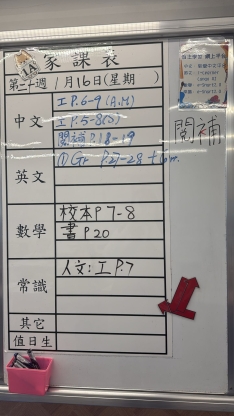 家課表
第二十週 1月16日(星期 )
中文
工P.6-9(A,B)
工P.5-8(S)
閱補P.18-19
英文
① Gr P.27-28 + 6m.
數學
校本P7-8
書P20
常識
人文:工P.7
其它
值日生
閱補